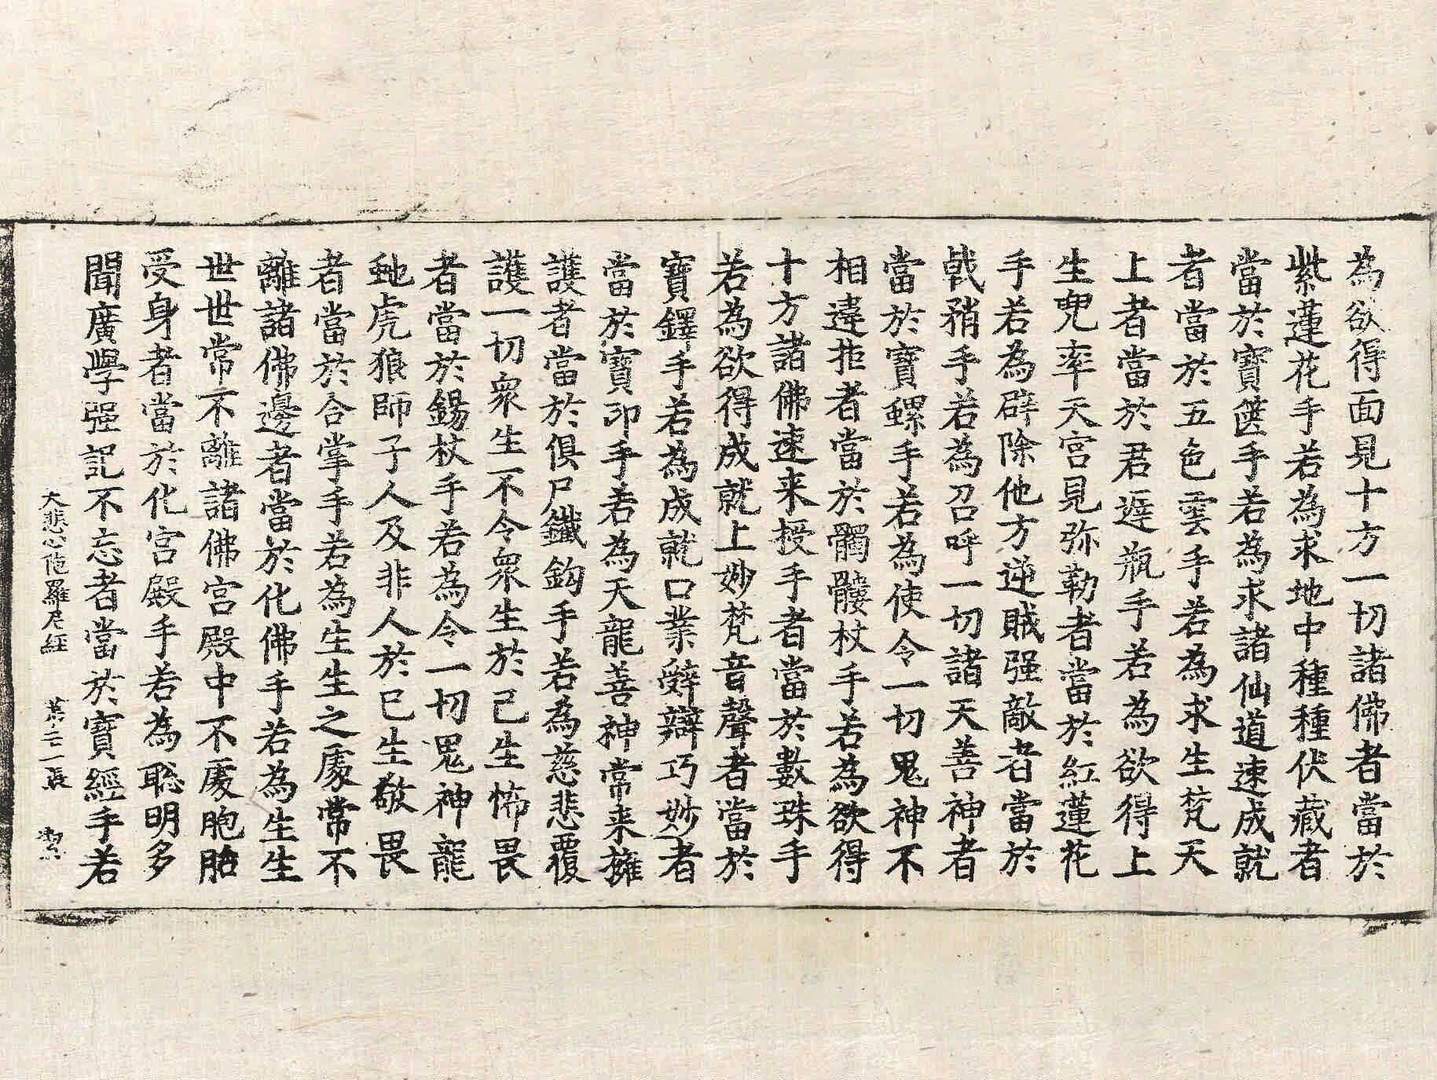 為欲得面見十方一切諸佛者當於
紫蓮花手若為求地中種種伏藏者
當於寶篋手若為求諸仙道速成就
者當於五色雲手若為求生梵天
上者當於君遲瓶手若為欲得上
生兜率天宮見弥勒者當於紅蓮花
手若為辟除他方逆賊强敵者當於
戟矟手若為召呼一切諸天善神者
當於寶螺手若為使令一切鬼神不
相違拒者當於髑髏杖手若為欲得
十方諸佛速来授手者當於數珠手
若為欲得成就上妙梵音聲者當於
寶鐸手若為成就口業辭辯巧妙者
當於寶印手若為天龍善神常来擁
護者當於俱尸鐵鉤手若為慈悲覆
護一切衆生不令衆生於己生怖畏
者當於錫杖手若為令一切鬼神龍
虵虎狼師子人及非人於己生敬畏
者當於合掌手若為生生之處常不
離諸佛邊者當於化佛手若為生生
世世常不離諸佛宮殿中不處胞胎
受身者當於化宮殿手若為聡明多
聞廣學强記不忘者當於寶經手若
大悲心陁羅尼經 苐二一張